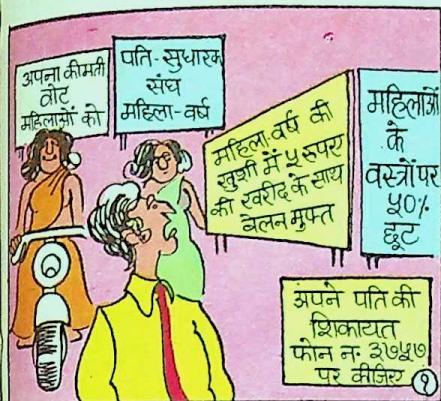 अपना कीमती
वोट
महिलाओं को
पति-सुधारक
संघ
महिला-वर्ष
महिला-वर्ष की
खुशी में ५ रुपए
की खरीद के साथ
बेलन मुफ्त
महिलाओं
के
वस्त्रों पर
५०%
छूट
अपने पति की
शिकायत
फोन नं. ३७५७
पर कीजिए
१